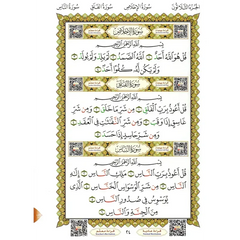 سورة الناس سورة الفلق سورة الإخلاص الجزء الثلاثون
سورة الإخلاص
بسم الله الرحمن الرحيم
قل هو الله أحد ۝ الله الصمد ۝ لم يلد ولم يولد ۝
ولم يكن له كفوا أحد ۝
سورة الفلق
بسم الله الرحمن الرحيم
قل أعوذ برب الفلق ۝ من شر ما خلق ۝ ومن شر
غاسق إذا وقب ۝ ومن شر النفثت في العقد ۝
ومن شر حاسد إذا حسد ۝
سورة الناس
بسم الله الرحمن الرحيم
قل أعوذ برب الناس ۝ ملك الناس ۝ إله
الناس ۝ من شر الوسواس الخناس ۝ الذي
يوسوس في صدور الناس ۝
من الجنة والناس ۝